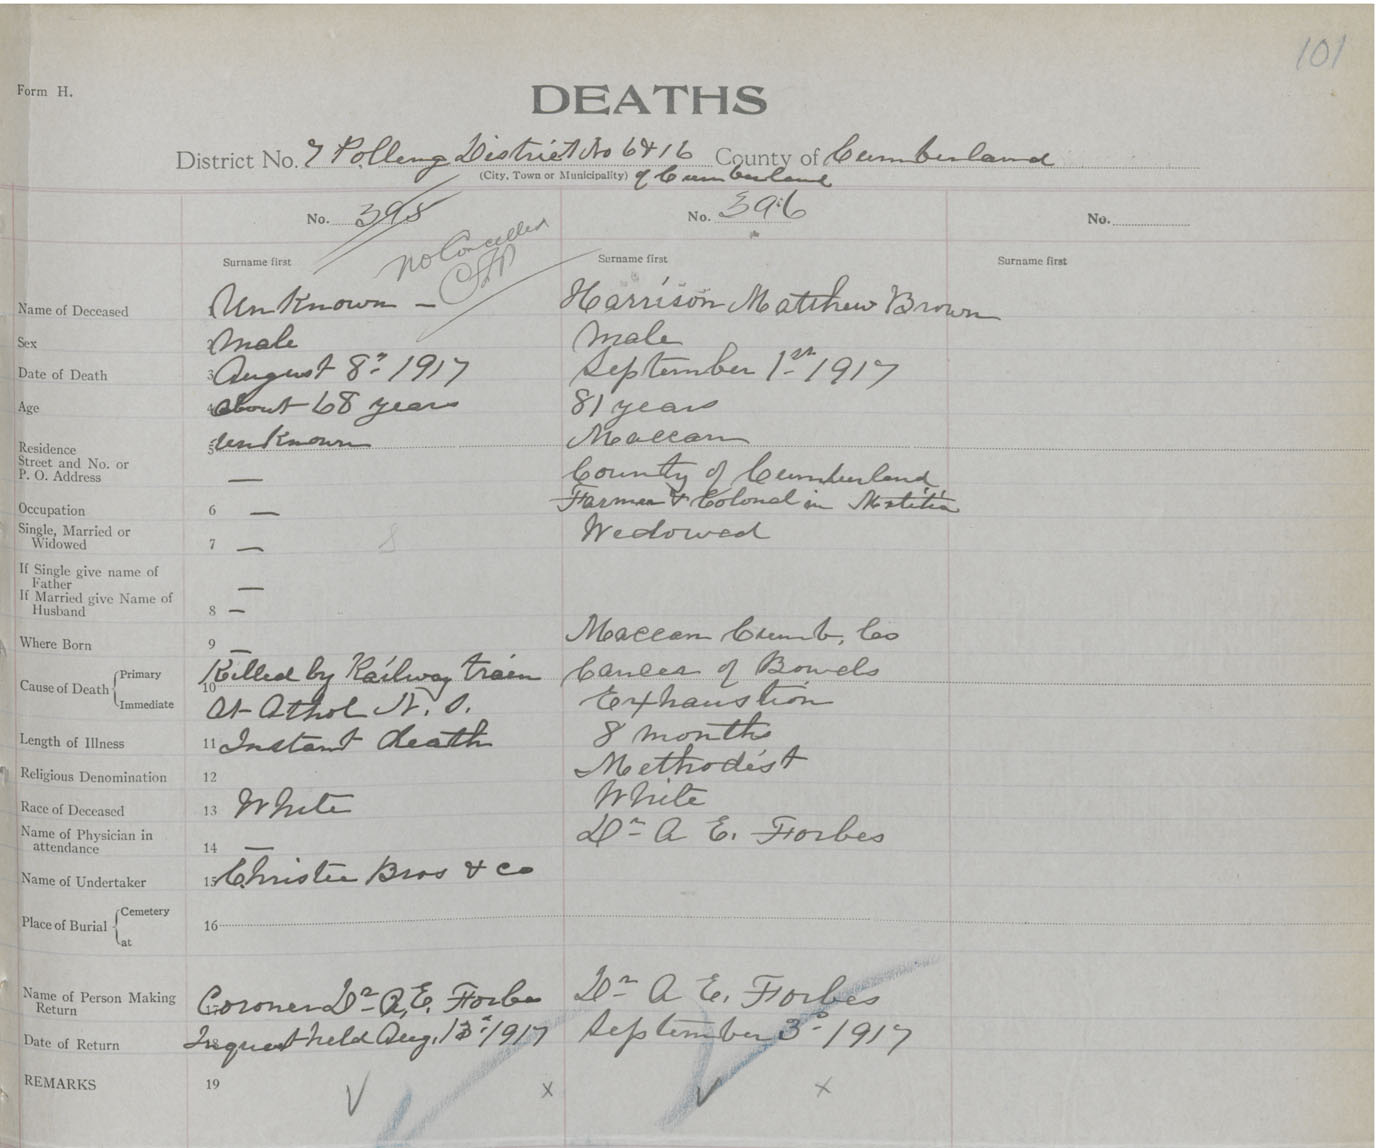 101
Form H.
DEATHS
District No. 7 Polling District No 6 & 16 County of Cumberland
(City, Town or Municipality) of Cumberland
No. 395 No. 396 No.
No Cancelled
Surname first Surname first Surname first
Name of Deceased Unknown — Harrison Matthew Brown
Sex 2 Male Male
Date of Death 3 August 8th 1917 September 1st 1917
Age 4 about 68 years 81 years
Residence 5 Unknown Maccan
Street and No. or
P. O. Address — County of Cumberland
Occupation 6 — Farmer & Colonal in Militia
Single, Married or
Widowed 7 — Widowed
If Single give name of
Father —
If Married give Name of
Husband 8 —
Where Born 9 — Maccan Cumb. Co
Cause of Death Primary 10 Killed by Railway train Cancer of Bowels
Immediate At Athol N. S. Exhaustion
Length of Illness 11 Instant death 8 months
Religious Denomination 12 Methodist
Race of Deceased 13 White White
Name of Physician in
attendance 14 — Dr A E. Forbes
Name of Undertaker 15 Christie Bros & Co
Place of Burial Cemetery 16
at
Name of Person Making
Return Coroner Dr A. E. Forbes Dr A E. Forbes
Date of Return 18 Inquest held Aug. 13th 1917 September 3d 1917
REMARKS 19